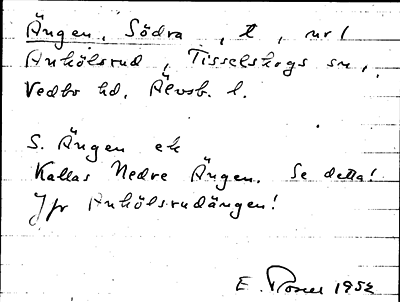 Ängen, Södra, t, nr 1
Anhölsrud, Tisselskogs sn,
Vedbo hd, Älvsb. l.
S. Ängen etc
Kallas Nedre Ängen. Se detta!
Jfr Anhölsrudängen!
E. 1952